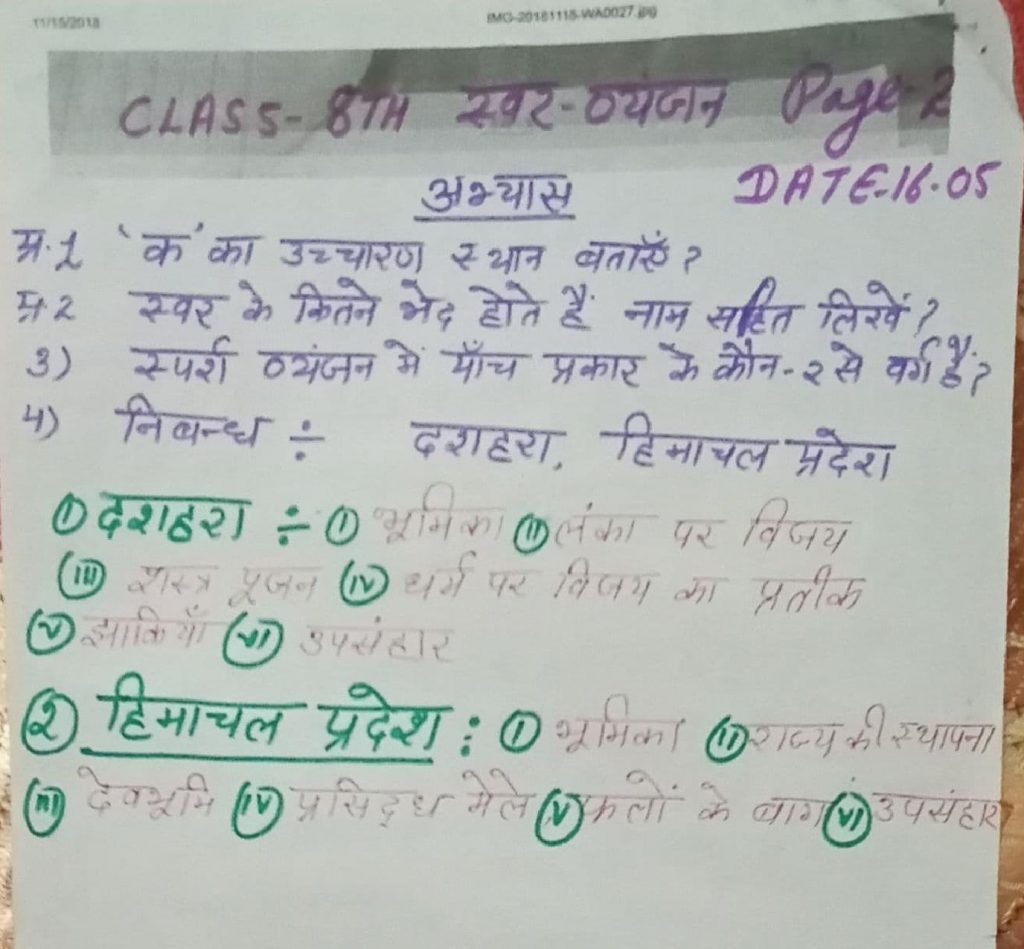 11/15/2018 IMG-20181115-WA0027.jpg
CLASS- 8TH स्वर-व्यंजन Page-2
DATE-16.05
अभ्यास
प्र.1 'क' का उच्चारण स्थान बताएँ?
प्र.2 स्वर के कितने भेद होते हैं नाम सहित लिखें?
3) स्पर्श व्यंजन में पाँच प्रकार के कौन-२ से वर्ग हैं?
4) निबन्ध ÷ दशहरा, हिमाचल प्रदेश
① दशहरा ÷ (i) भूमिका (ii) लंका पर विजय
(iii) शस्त्र पूजन (iv) धर्म पर विजय का प्रतीक
(v) झाकियाँ (vi) उपसंहार
② हिमाचल प्रदेश : (i) भूमिका (ii) राज्य की स्थापना
(iii) देवभूमि (iv) प्रसिद्ध मेले (v) फलों के बाग (vi) उपसंहार